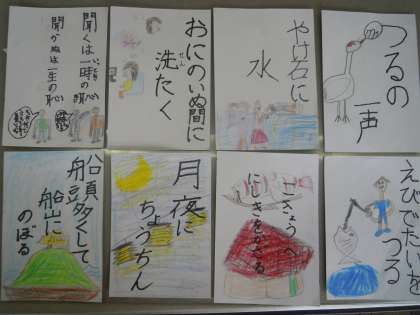 つるの
一声
やけ石に
水
おにのいぬ間に
洗たく
聞くは一時の恥
聞かぬは一生の恥
えびでたいを
つる
こきょうへ
にしきをかざる
月夜に
ちょうちん
船頭多くして
船山に
のぼる